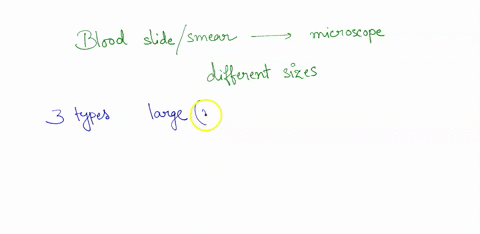 Blood slide/smear → microscope
different sizes
3 types large (